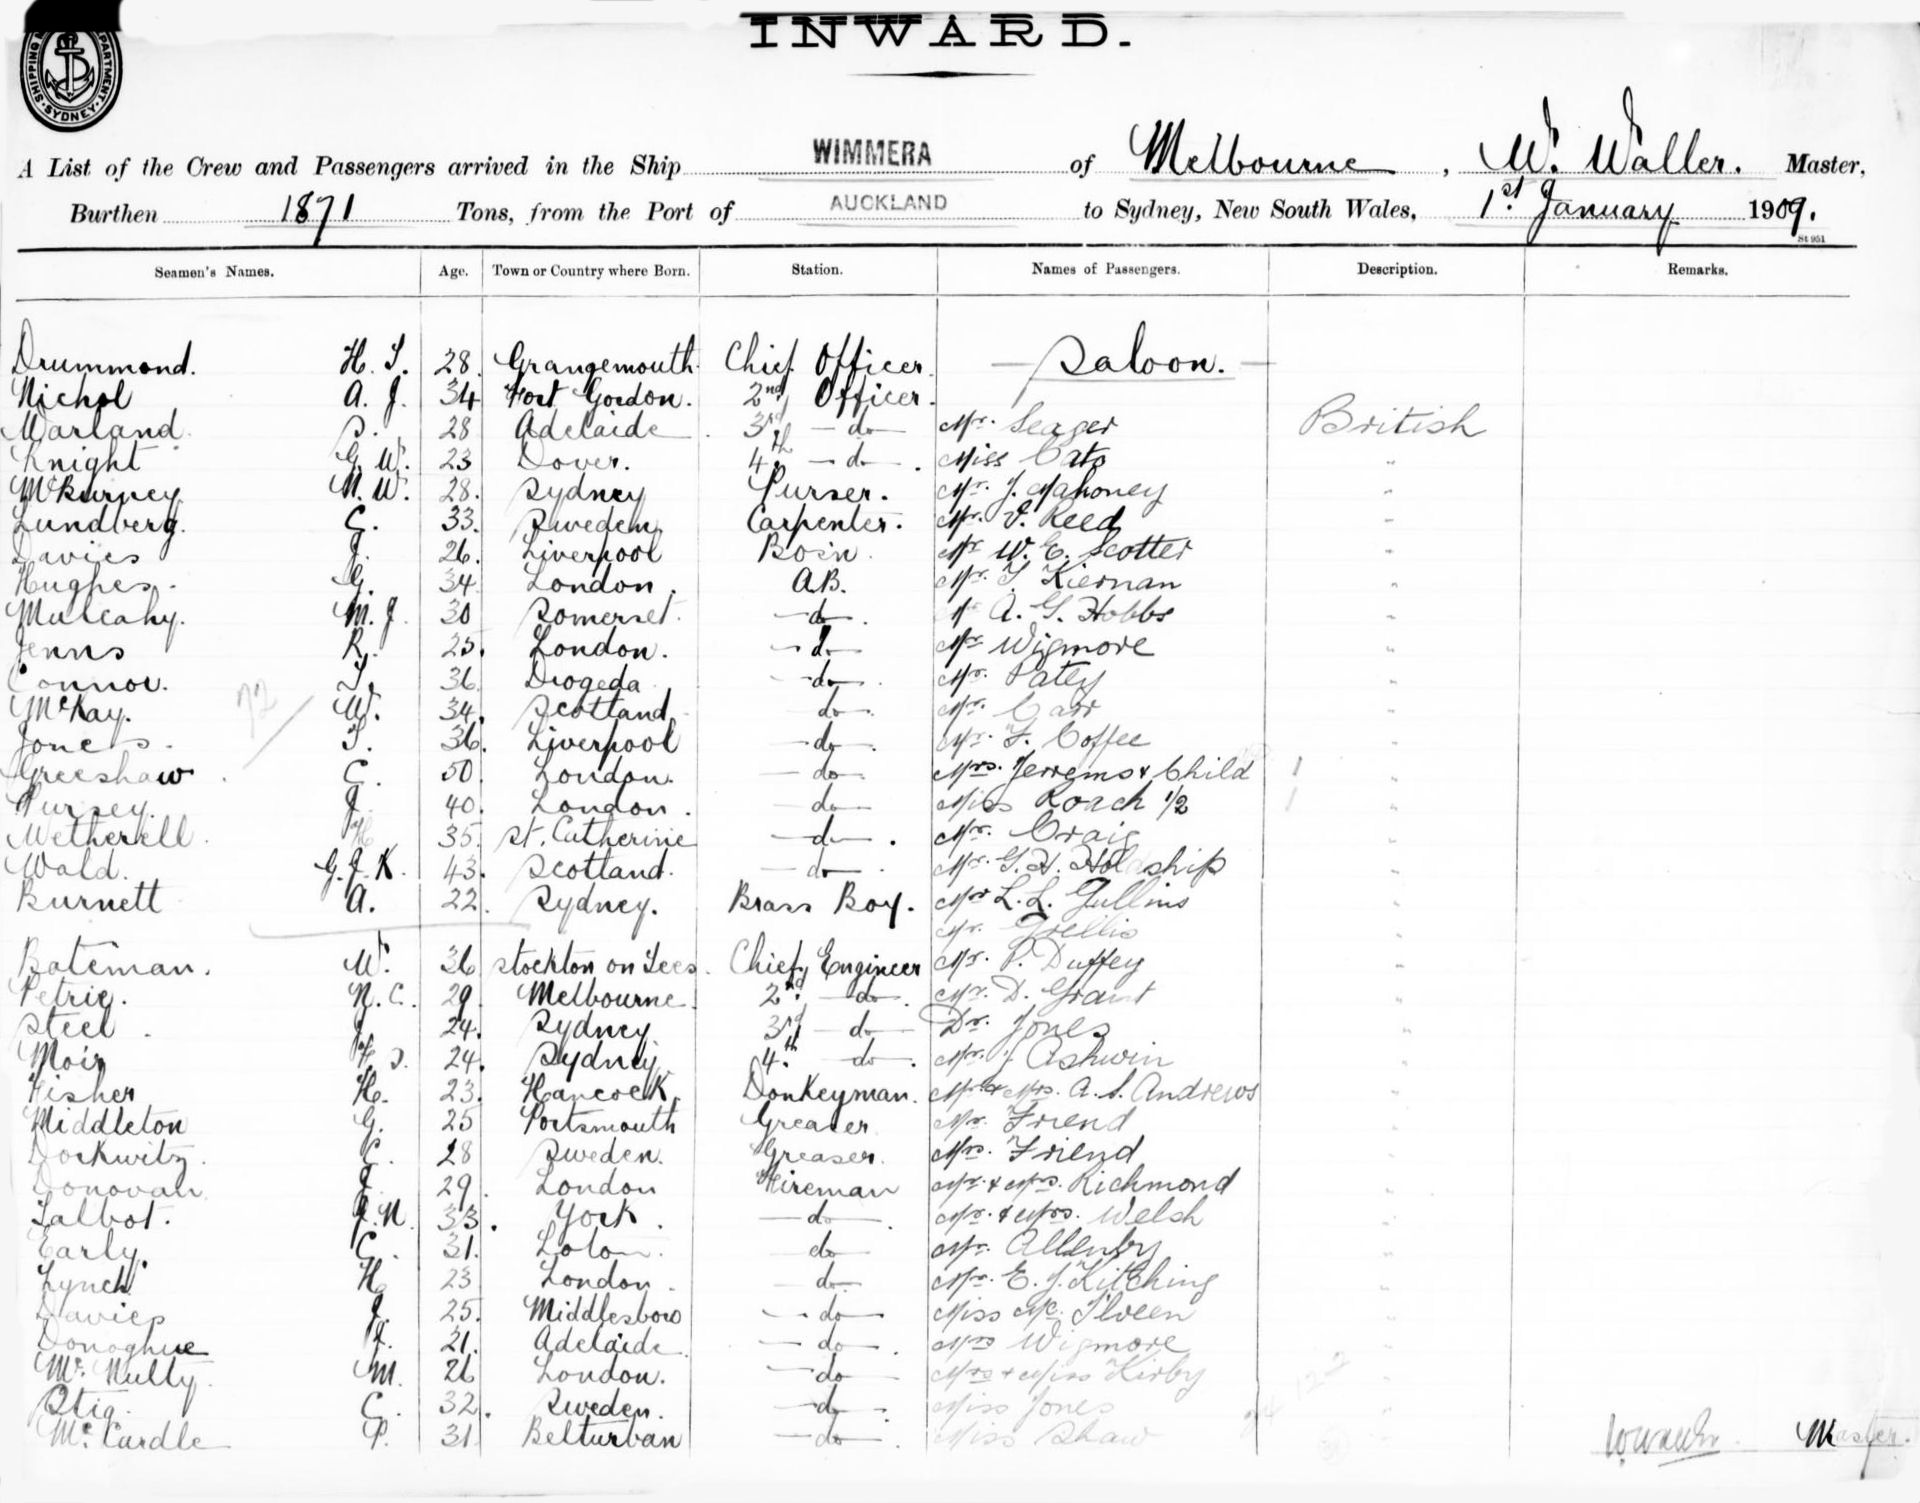 INWARD.
SHIPPING DEPARTMENT SYDNEY
A List of the Crew and Passengers arrived in the Ship WIMMERA of Melbourne, W. Waller. Master,
Burthen 1871 Tons, from the Port of AUCKLAND to Sydney, New South Wales, 1st January 1909.
St 951
Seamen's Names. Age. Town or Country where Born. Station. Names of Passengers. Description. Remarks.
Drummond. H. S. 28. Grangemouth Chief Officer. Saloon.
Nichol A. J. 34 Fort Gordon. 2nd Officer.
Warland S. 28 Adelaide 3rd - do - Mr. Seager British
Knight G. W. 23 Dover. 4th - do - Miss Cato "
McBurney N. W. 28. Sydney Purser. Mr. J. Mahoney "
Lundberg. C. 33. Sweden Carpenter. Mr. V. Reed "
Davies J. 26. Liverpool Bosn. Mr W. E. Scotter "
Hughes. G. 34 London. A.B. Mr. T Kiernan "
Mulcahy. M. J. 30 Somerset. - do - Mr A. G. Hobbs "
Jenns R. 25. London. - do - Mr Wigmore "
Connor. T. 36 Drogeda - do - Mr. Patey "
McKay. W. 34. Scotland - do - Mr. Carr "
Jones. T. 36. Liverpool - do - Mr. F. Coffee "
Greeshaw C. 50. London. - do - Mrs. Jerrems & Child 1 "
Pursey. J. 40. London. - do - Miss Roach 1/2 1 "
Wetherell H 35. St. Catherine - do - Mr. Craig "
Wald. G. J. K. 43. Scotland. - do - Mr. G. H. Holdship "
Burnett A. 22. Sydney. Brass Boy. Mr L. L. Gullins "
Mr. Grellis "
Bateman. W. 36 Stockton on Tees. Chief Engineer Mr. P. Duffey "
Petrie. N. C. 29. Melbourne 2nd - do - Mr. D. Grant "
Steel J. 24. Sydney 3rd - do - Dr. Jones "
Moir F. S. 24. Sydney 4th - do - Mr. J Ashwin "
Fisher H. 23. Hancock. Donkeyman. Mr & Mrs. A. S. Andrews "
Middleton G. 25 Portsmouth Greaser Mr. Friend "
Doskwitz. C. 28 Sweden. Greaser. Mrs. Friend "
Donovan J. 29. London Fireman Mr. & Mrs. Richmond "
Talbot. J. N 33. York. - do - Mr. & Mrs. Welsh "
Early. C. 31. Loton. do Mr. Allenby "
Lynch H 23 London - do - Mr. E. J. Kitching "
Davies J. 25. Middlesboro - do - Miss Mc. Ilveen "
Donoghue J. 21. Adelaide. - do - Mrs Wigmore "
Mc. Nulty. M. 26 London. - do - Mrs & Miss Kirby "
C. 32. Sweden. - do - Miss Jones "
Mc. Cardle P. 31 Belturban - do - Miss Shaw Master.